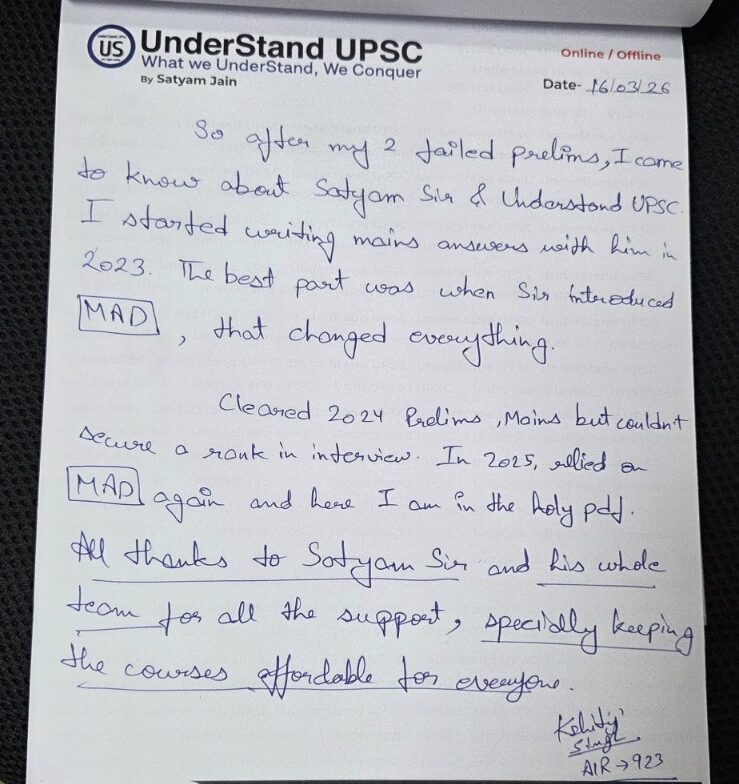 US
UnderStand UPSC
What we UnderStand, We Conquer
By Satyam Jain
Online / Offline
Date- 16/03/26
So after my 2 failed prelims, I came
to know about Satyam Sir & Understand UPSC.
I started writing mains answers with him in
2023. The best part was when Sir introduced
MAD, that changed everything.
Cleared 2024 Prelims, Mains but couldn't
secure a rank in interview. In 2025, relied on
MAD again and here I am in the holy pdf.
All thanks to Satyam Sir and his whole
team for all the support, specially keeping
the courses affordable for everyone.
Kshitij
Singh
AIR → 923